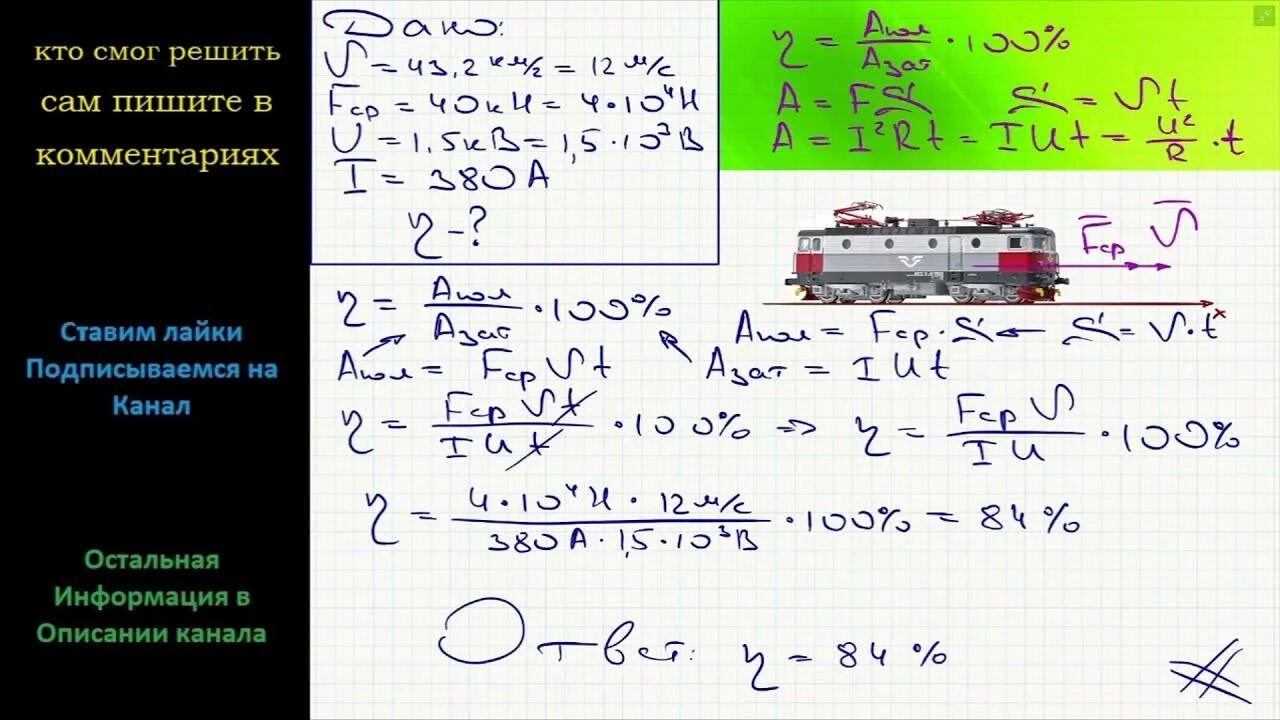 кто смог решить
сам пишите в
комментариях
Ставим лайки
Подписываемся на
Канал
Остальная
Информация в
Описании канала
Дано:
V = 43,2 км/ч = 12 м/с
Fср = 40кН = 4·10⁴Н
U = 1,5кВ = 1,5·10³В
I = 380А
η - ?
η = Апол/Азат · 100%
A = FS S = Vt
A = I²Rt = IUt = U²/R · t
Fср V
x
η = Апол/Азат · 100%
Апол = Fср · S ← S = V·t
Апол = Fср V t Азат = I U t
η = Fср V t/I U t · 100% => η = Fср V/I U · 100%
η = 4·10⁴Н · 12м/с/380А · 1,5·10³В · 100% = 84%
Ответ: η = 84%